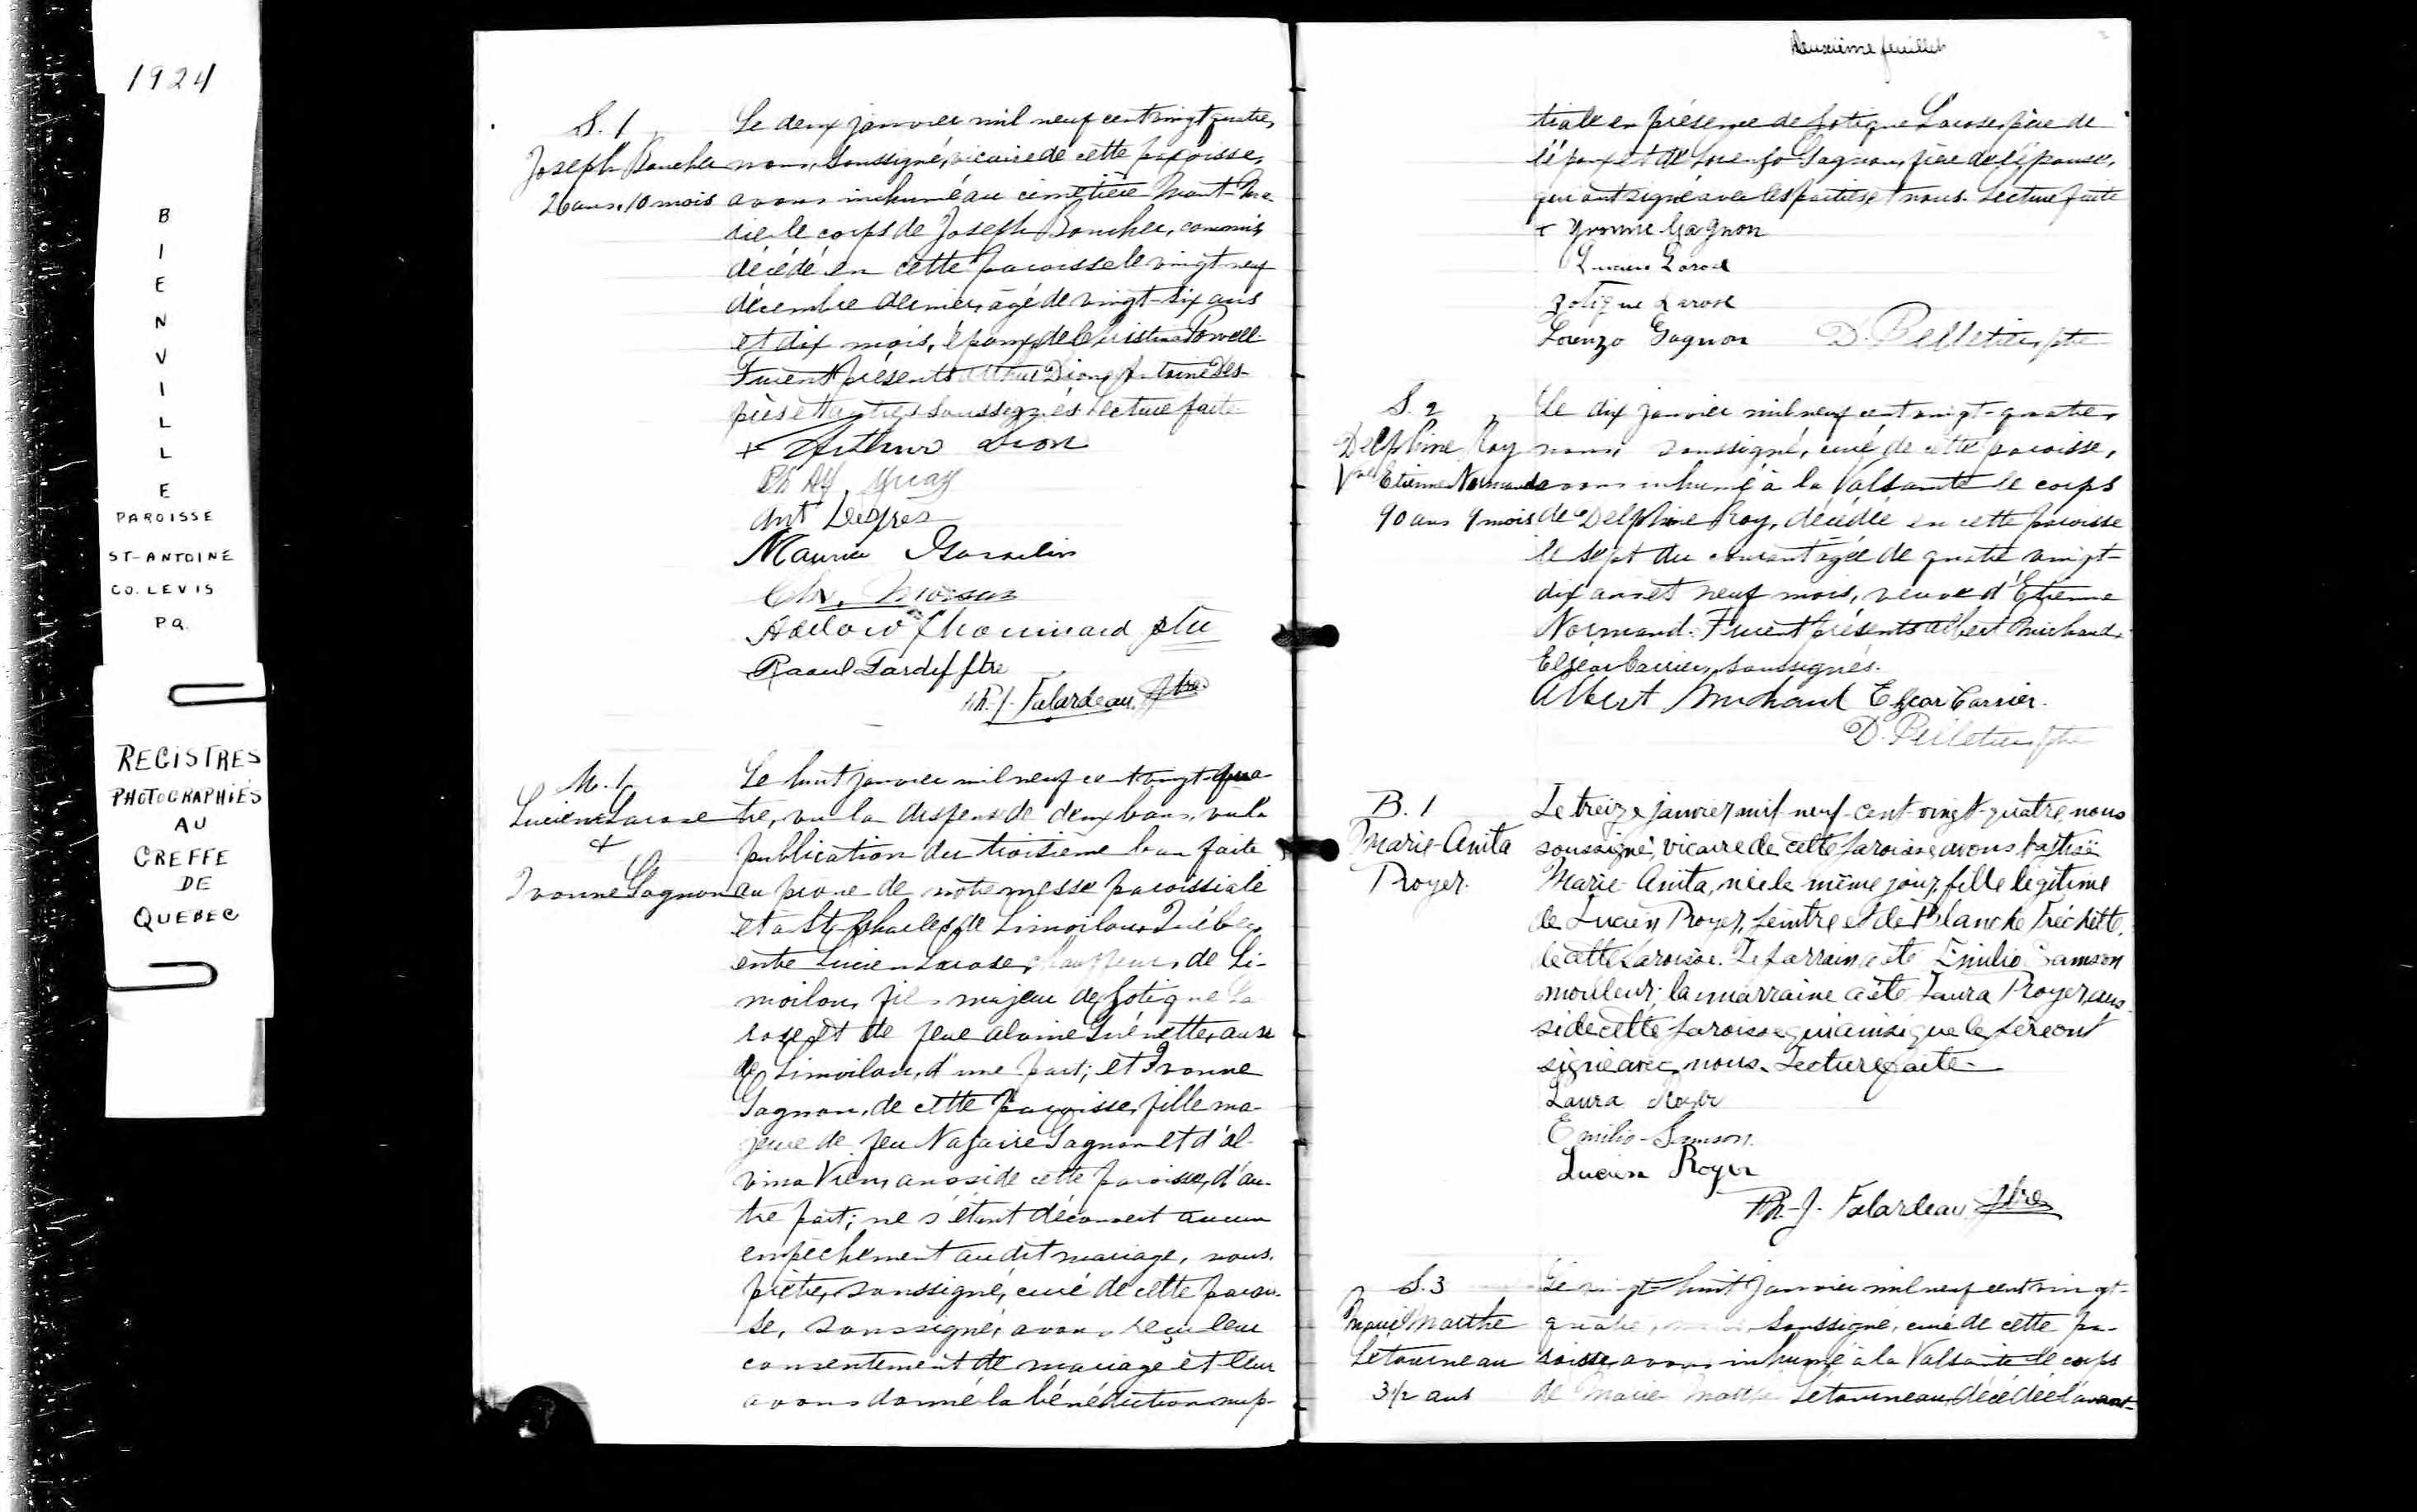 1924
BIENVILLE
PAROISSE
ST-ANTOINE
CO. LEVIS
P.Q.
REGISTRES
PHOTOGRAPHIÉS
AU
GREFFE
DE
QUEBEC
S. 1
Joseph Boucher
26 ans, 10 mois
Le deux janvier mil neuf cent vingt quatre,
nous, soussigné, vicaire de cette paroisse,
avons inhumé au cimetière Mont-Ma-
rie, le corps de Joseph Boucher, commis,
décédé en cette paroisse le vingt-neuf
décembre dernier, âgé de vingt-six ans
et dix mois, époux de Christine Powell.
Furent présents Arthur Dion, Antoine Des-
près et autres soussignés. Lecture faite
+ Arthur Dion
Ant Després
Maurice
Chouinard ptre
Raoul Tardif ptre
Ph.-J. Falardeau, Ptre
M. 1
Lucien Larose
&
Yvonne Gagnon
Le huit janvier mil neuf cent vingt-qua-
tre, vu la dispense de deux bans, vu la
publication du troisième ban faite
au prone de notre messe paroissiale
et à St Charles de Limoilou, Québec,
entre Lucien Larose, chauffeur, de Li-
moilou, fils majeur de Zotique La
rose et de feue Guénette, aussi
de Limoilou, d'une part; et Yvonne
Gagnon, de cette paroisse, fille ma-
jeure de feu Nazaire Gagnon et d'Al-
vina Vien, aussi de cette paroisse, d'au-
tre part; ne s'étant découvert aucun
empêchement audit mariage, nous,
prêtre, soussigné, curé de cette parois-
se, soussigné, avons reçu leur
consentement de mariage et leur
avons donné la bénédiction nup-
Deuxième feuillet
tiale en présence de Zotique Larose, père de
l'époux et de Lorenzo Gagnon, frère de l'épouse,
qui ont signé avec les parties et nous. Lecture faite
+ Yvonne Gagnon
Lucien Larose
Zotique Larose
Lorenzo Gagnon D. Pelletier, ptre
S. 2
Delphine Roy
Vve Etienne Normand
90 ans 9 mois
Le dix janvier mil neuf cent vingt-quatre,
nous, soussigné, curé de cette paroisse,
avons inhumé à la Valsainte le corps
de Delphine Roy, décédée en cette paroisse
le sept du courant âgée de quatre vingt-
dix ans et neuf mois, veuve d'Etienne
Normand. Furent présents Albert Michaud,
Elzéar Carrier, soussignés.
Albert Michaud Elzear Carrier.
D. Pelletier, ptre
B. 1
Marie-Anita
Royer.
Le treize janvier mil neuf-cent-vingt-quatre nous
soussigné, vicaire de cette paroisse avons baptisé
Marie-Anita, née le même jour, fille légitime
de Lucien Royer, peintre et de Blanche Fréchette,
de cette paroisse. Le parrain a été Emilio Samson
mouleur; la marraine a été Laura Royer, aus-
si de cette paroisse qui ainsi que le père ont
signé avec nous. Lecture faite.
Laura Royer
Emilio-Samson.
Lucien Royer
Ph.-J. Falardeau, Ptre
S. 3
Marie Marthe
Letourneau
3 1/2 ans
Le vingt-huit janvier mil neuf cent vingt-
quatre, nous, soussigné, curé de cette pa-
roisse, avons inhumé à la Valsainte le corps
de Marie Marthe Letourneau, décédée l'avant-